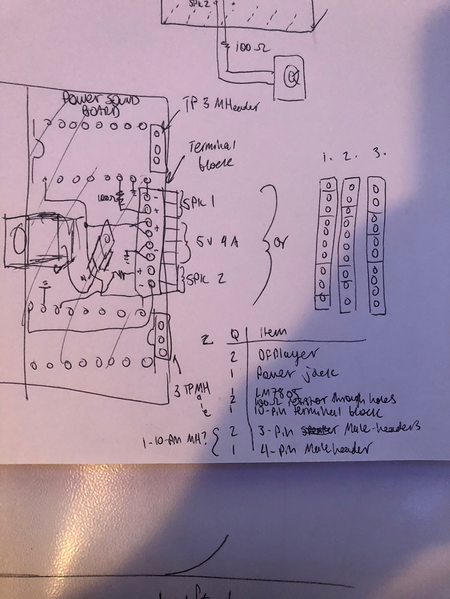 SPK2
100Ω
POWER SOUND
BOARD
TP 3 MHeader
Terminal
block
1. 2. 3.
100Ω
SPK 1
5V 4A
or
SPK 2
2
Q Item
2 DFPlayer
1 Power jack
1 LM7805
2 100Ω resistor through holes
1 10-pin terminal block
3 TPMH
1-10-pin MH?
2 3-pin Male-headers
1 4-pin Male header